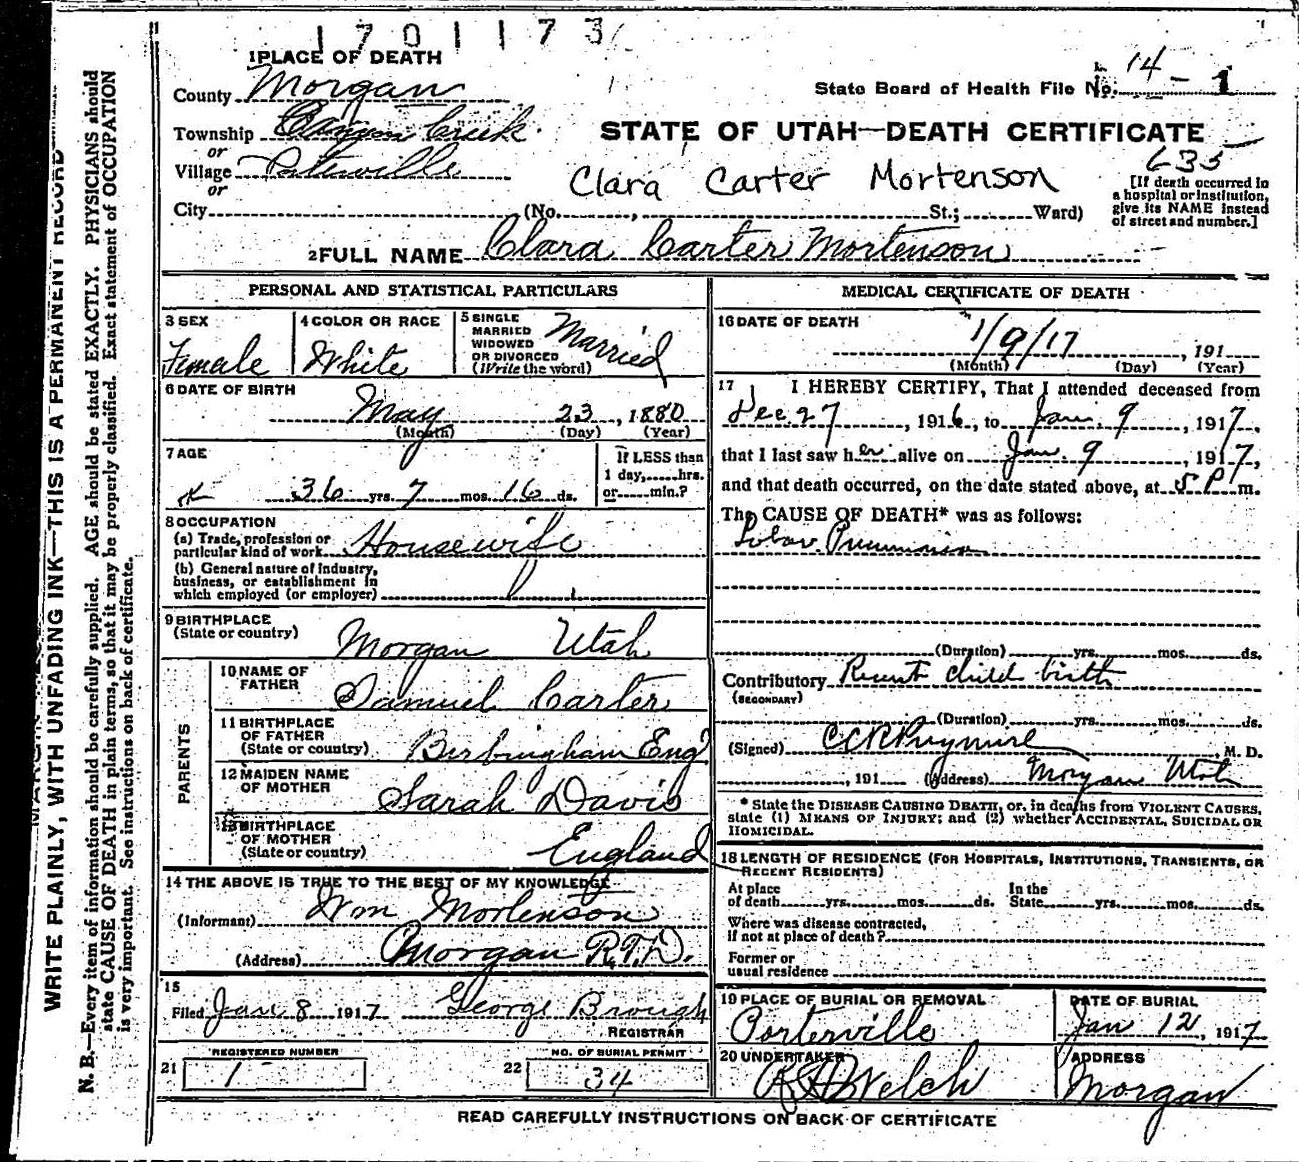 1701173
1 PLACE OF DEATH
County Morgan
State Board of Health File No. 14 - 1
Township Canyon Creek
or
STATE OF UTAH—DEATH CERTIFICATE
635
Village Porterville
or
Clara Carter Mortenson
[If death occurred in
a hospital or institution,
give its NAME instead
of street and number.]
City (No. , St.; Ward)
2 FULL NAME Clara Carter Mortenson
PERSONAL AND STATISTICAL PARTICULARS
3 SEX
Female
4 COLOR OR RACE
White
5 SINGLE
MARRIED
WIDOWED
OR DIVORCED
(Write the word)
Married
6 DATE OF BIRTH
May 23, 1880
(Month) (Day) (Year)
7 AGE
36 yrs. 7 mos. 16 ds.
If LESS than
1 day, hrs.
or min.?
8 OCCUPATION
(a) Trade, profession or
particular kind of work Housewife
(b) General nature of Industry,
business, or establishment in
which employed (or employer)
9 BIRTHPLACE
(State or country)
Morgan Utah
PARENTS
10 NAME OF
FATHER
Samuel Carter
11 BIRTHPLACE
OF FATHER
(State or country)
Birbingham Eng
12 MAIDEN NAME
OF MOTHER
Sarah Davis
13 BIRTHPLACE
OF MOTHER
(State or country)
England
14 THE ABOVE IS TRUE TO THE BEST OF MY KNOWLEDGE
(Informant) Wm Mortenson
(Address) Morgan R.F.D.
15
Filed Jan 8 1917 George Brough
REGISTRAR
REGISTERED NUMBER
21 1
NO. OF BURIAL PERMIT
22 34
MEDICAL CERTIFICATE OF DEATH
16 DATE OF DEATH
1/9/17, 191
(Month) (Day) (Year)
17 I HEREBY CERTIFY, That I attended deceased from
Dec. 27, 1916, to Jan. 9, 1917,
that I last saw her alive on Jan. 9, 1917,
and that death occurred, on the date stated above, at 5 P m.
The CAUSE OF DEATH* was as follows:
Lobar Pneumonia
(Duration) yrs. mos. ds.
Contributory Recent child birth
(SECONDARY)
(Duration) yrs. mos. ds.
(Signed) M. D.
, 191 (Address) Morgan Utah
* State the DISEASE CAUSING DEATH, or, in deaths from VIOLENT CAUSES,
state (1) MEANS OF INJURY; and (2) whether ACCIDENTAL, SUICIDAL OR
HOMICIDAL.
18 LENGTH OF RESIDENCE (FOR HOSPITALS, INSTITUTIONS, TRANSIENTS, OR
RECENT RESIDENTS)
At place
of death yrs. mos. ds.
In the
State yrs. mos. ds.
Where was disease contracted,
If not at place of death?
Former or
usual residence
19 PLACE OF BURIAL OR REMOVAL
Porterville
DATE OF BURIAL
Jan 12, 1917
20 UNDERTAKER
Welch
ADDRESS
Morgan
READ CAREFULLY INSTRUCTIONS ON BACK OF CERTIFICATE
WRITE PLAINLY, WITH UNFADING INK—THIS IS A PERMANENT RECORD
N. B.—Every item of information should be carefully supplied. AGE should be stated EXACTLY. PHYSICIANS should
state CAUSE OF DEATH in plain terms, so that it may be properly classified. Exact statement of OCCUPATION
is very important. See instructions on back of certificate.